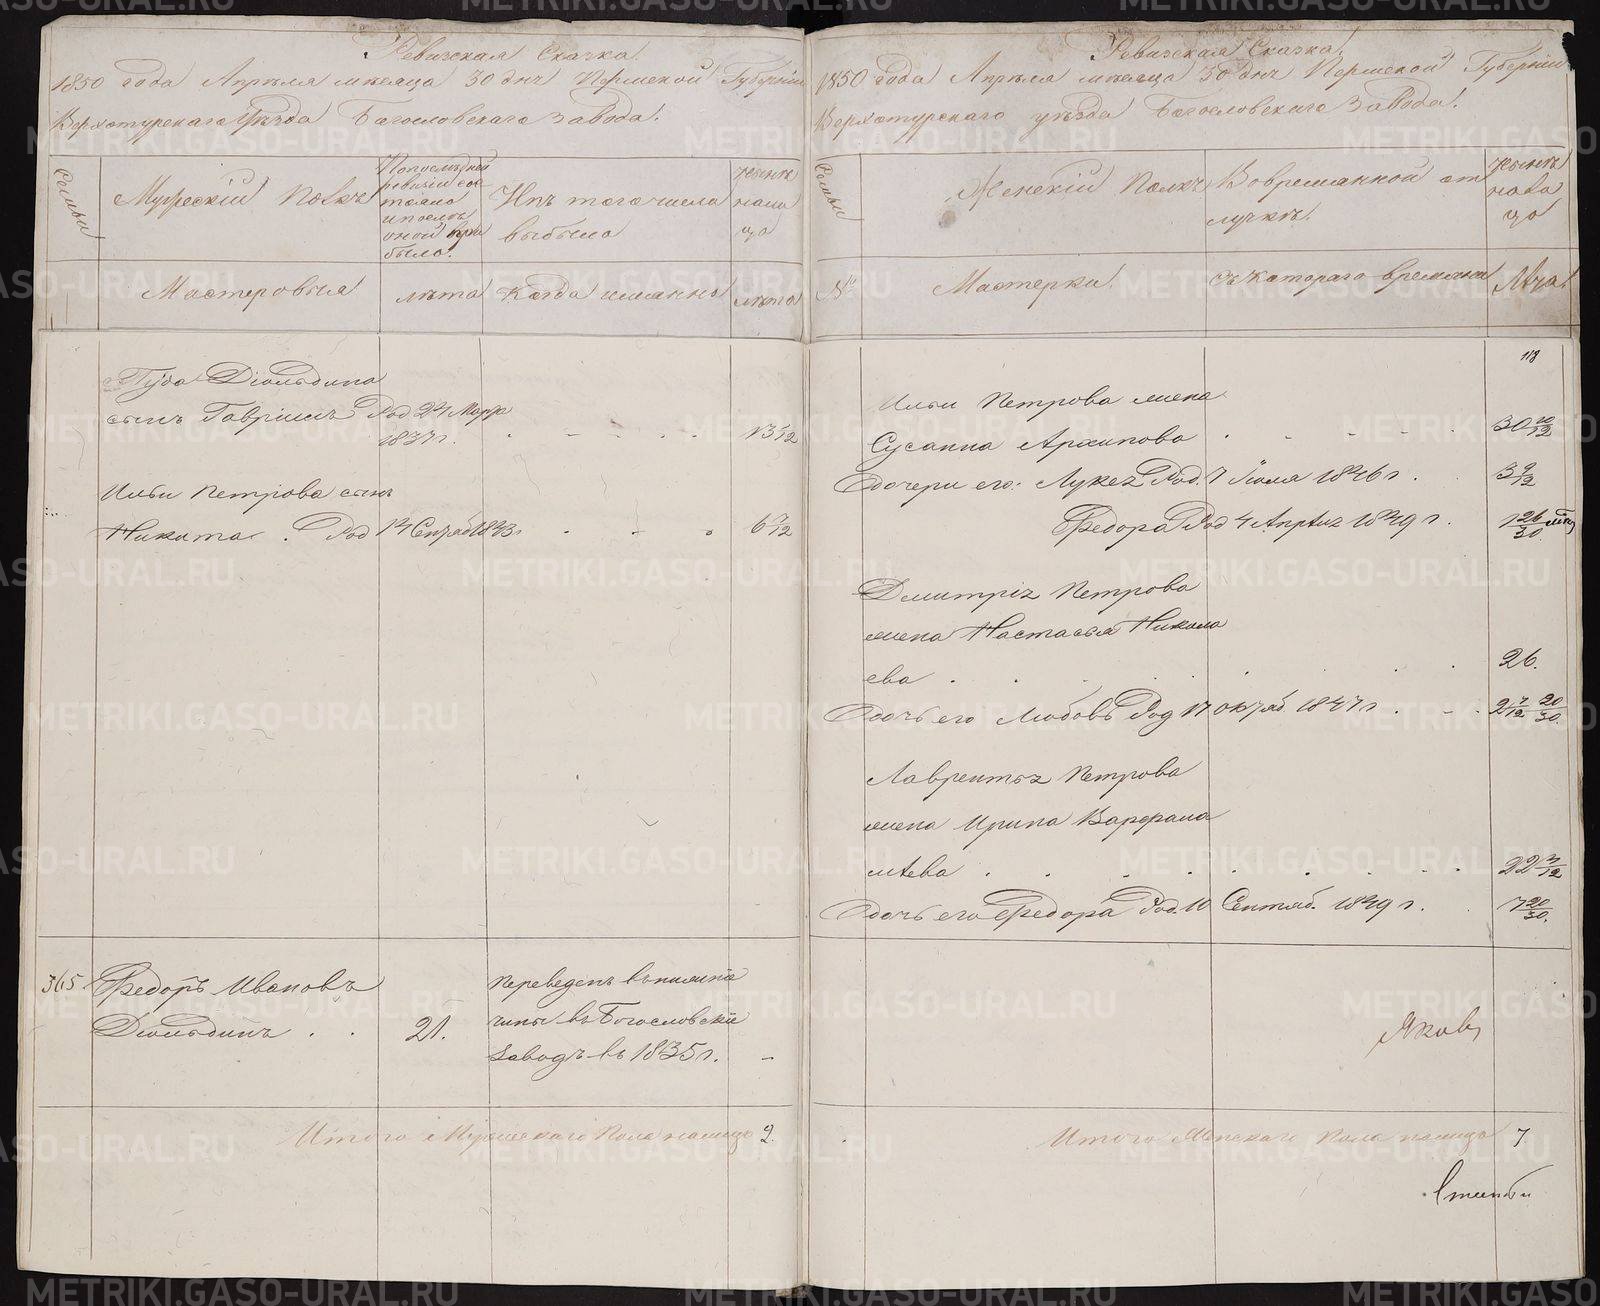 Ревизская Сказка
1850 года Апреля месяца 30 дня Пермской Губернии
Верхотурскаго Уезда Богословскаго Завода.
Семьи
Мужеский Полъ
По последней ревизии состояло и после оной прибыло.
Изъ того числа выбыло
Ныне на лицо
Мастеровыя
лета
Когда именно
лета
Дюльдина
сынъ Гаврiилъ Род 24 Мар
1837 г.
13 1/12
Ильи Петрова сынъ
Никита . Род 14 Сентяб 1843 г
6 7/12
365
Федоръ Ивановъ
Дюльдинъ . .
21.
Переведенъ въ
чины въ Богословский
Заводъ въ 1835 г.
Итого Мужескаго Пола налицо 2.
Ревизская Сказка
1850 года Апреля месяца 30 дня Пермской Губернии
Верхотурскаго уезда Богословскаго Завода.
Семьи
Женский Полъ
Во временной отлучке.
Ныне на лицо
№
Мастерки
Съ котораго времени
Лета
113
Ильи Петрова жена
Сусанна Архипова
30 10/12
дочери его: Род. 7 1846 г.
3 9/12
Федора Род 4 Апреля 1849 г.
1 26/30
Дмитрiя Петрова
жена Настасья Никола
ева
26.
дочь его Любовь Род 17 Октяб. 1847 г.
2 7/12 20/30.
Лаврентья Петрова
жена Ирина Варфоло
меева
22 3/12
дочь его Федора Род. 10 Сентяб. 1849 г.
7 20/30.
Итого Женскаго Пола налицо 7.